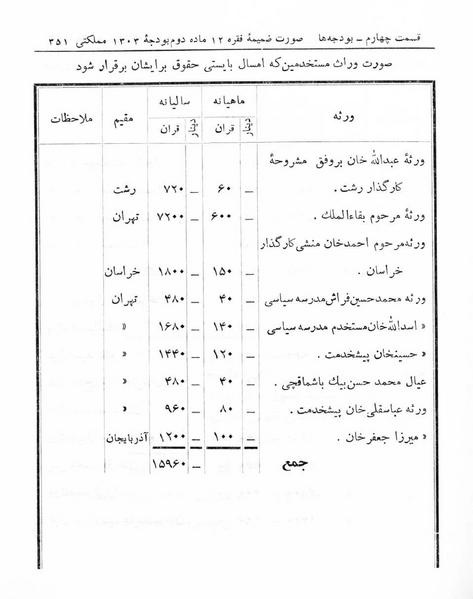 قسمت چهارم ـ بودجه‌ها صورت ضمیمهٔ فقره ۱۲ ماده دوم بودجهٔ ۱۳۰۳ مملکتی ۳۵۱
صورت وراث مستخدمین که امسال بایستی حقوق برایشان برقرار شود
ورثه ماهیانه سالیانه مقیم ملاحظات
دینار قران دینار قران
ورثهٔ عبدالله خان بروفق مشروحهٔ
کارگذار رشت . ـ ۶۰ ـ ۷۲۰ رشت
ورثهٔ مرحوم بقاءالملك . ـ ۶۰۰ ـ ۷۲۰۰ تهران
ورثه مرحوم احمدخان منشی کارگذار
خراسان . ـ ۱۵۰ ـ ۱۸۰۰ خراسان
ورثه محمدحسین فراش مدرسه سیاسی ـ ۴۰ ـ ۴۸۰ تهران
« اسدالله خان مستخدم مدرسه سیاسی ـ ۱۴۰ ـ ۱۶۸۰ «
« حسینخان پیشخدمت . ـ ۱۲۰ ـ ۱۴۴۰ «
عیال محمد حسن بیك باشماقچی . ـ ۴۰ ـ ۴۸۰ «
ورثه عباسقلی خان پیشخدمت . ـ ۸۰ ـ ۹۶۰ «
« میرزا جعفرخان . ـ ۱۰۰ ـ ۱۲۰۰ آذربایجان
جمع ـ ۱۵۹۶۰